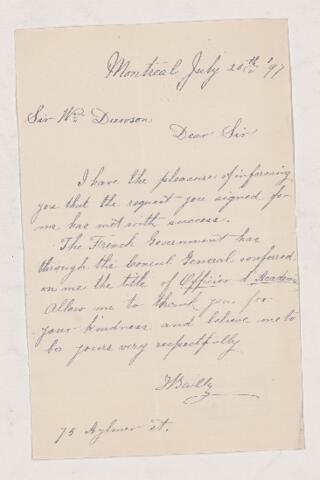 Montreal July 20th '97
Sir Wm Dawson
Dear Sir
I have the pleasure of informing
you that the request you signed for
me has met with success.
The French Government has
through the Consul General conferred
on me the title of Officier d'Academie
Allow me to thank you for
your kindness and believe me to
be yours very respectfully
75 Aylmer st.